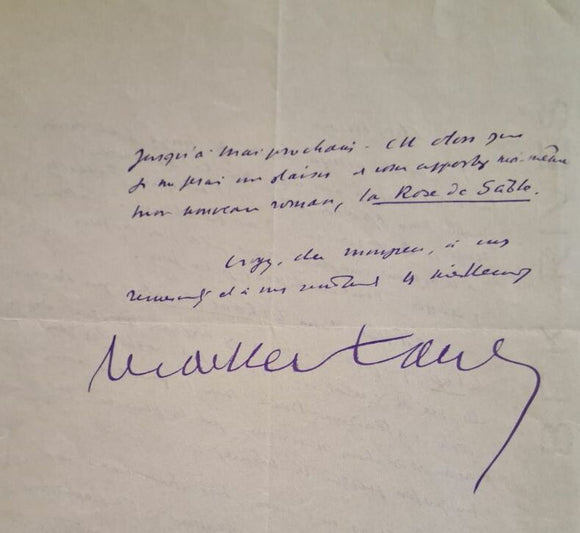 jusqu'à mai prochain. Et alors que
je me ferai un plaisir de vous apporter moi-même
mon nouveau roman, la Rose de Sable.
Croyez, cher monsieur, à mes
remerciements et à mes sentiments les meilleurs